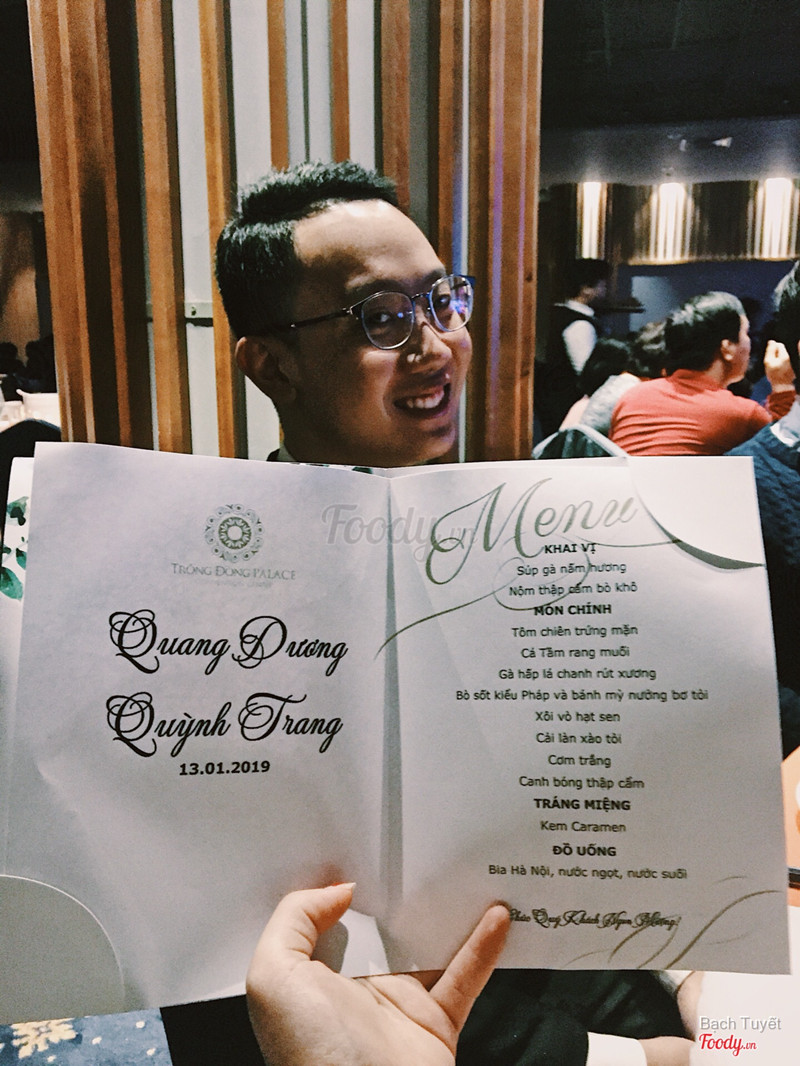 TRỐNG ĐỒNG PALACE
Quang Dương
Quỳnh Trang
13.01.2019
Menu
KHAI VỊ
Súp gà nấm hương
Nộm thập cẩm bò khô
MÓN CHÍNH
Tôm chiên trứng mặn
Cá Tầm rang muối
Gà hấp lá chanh rút xương
Bò sốt kiểu Pháp và bánh mỳ nướng bơ tỏi
Xôi vò hạt sen
Cải làn xào tỏi
Cơm trắng
Canh bóng thập cẩm
TRÁNG MIỆNG
Kem Caramen
ĐỒ UỐNG
Bia Hà Nội, nước ngọt, nước suối
Quý Khách Ngon Miệng!
Foody.vn
Bạch Tuyết
Foody.vn